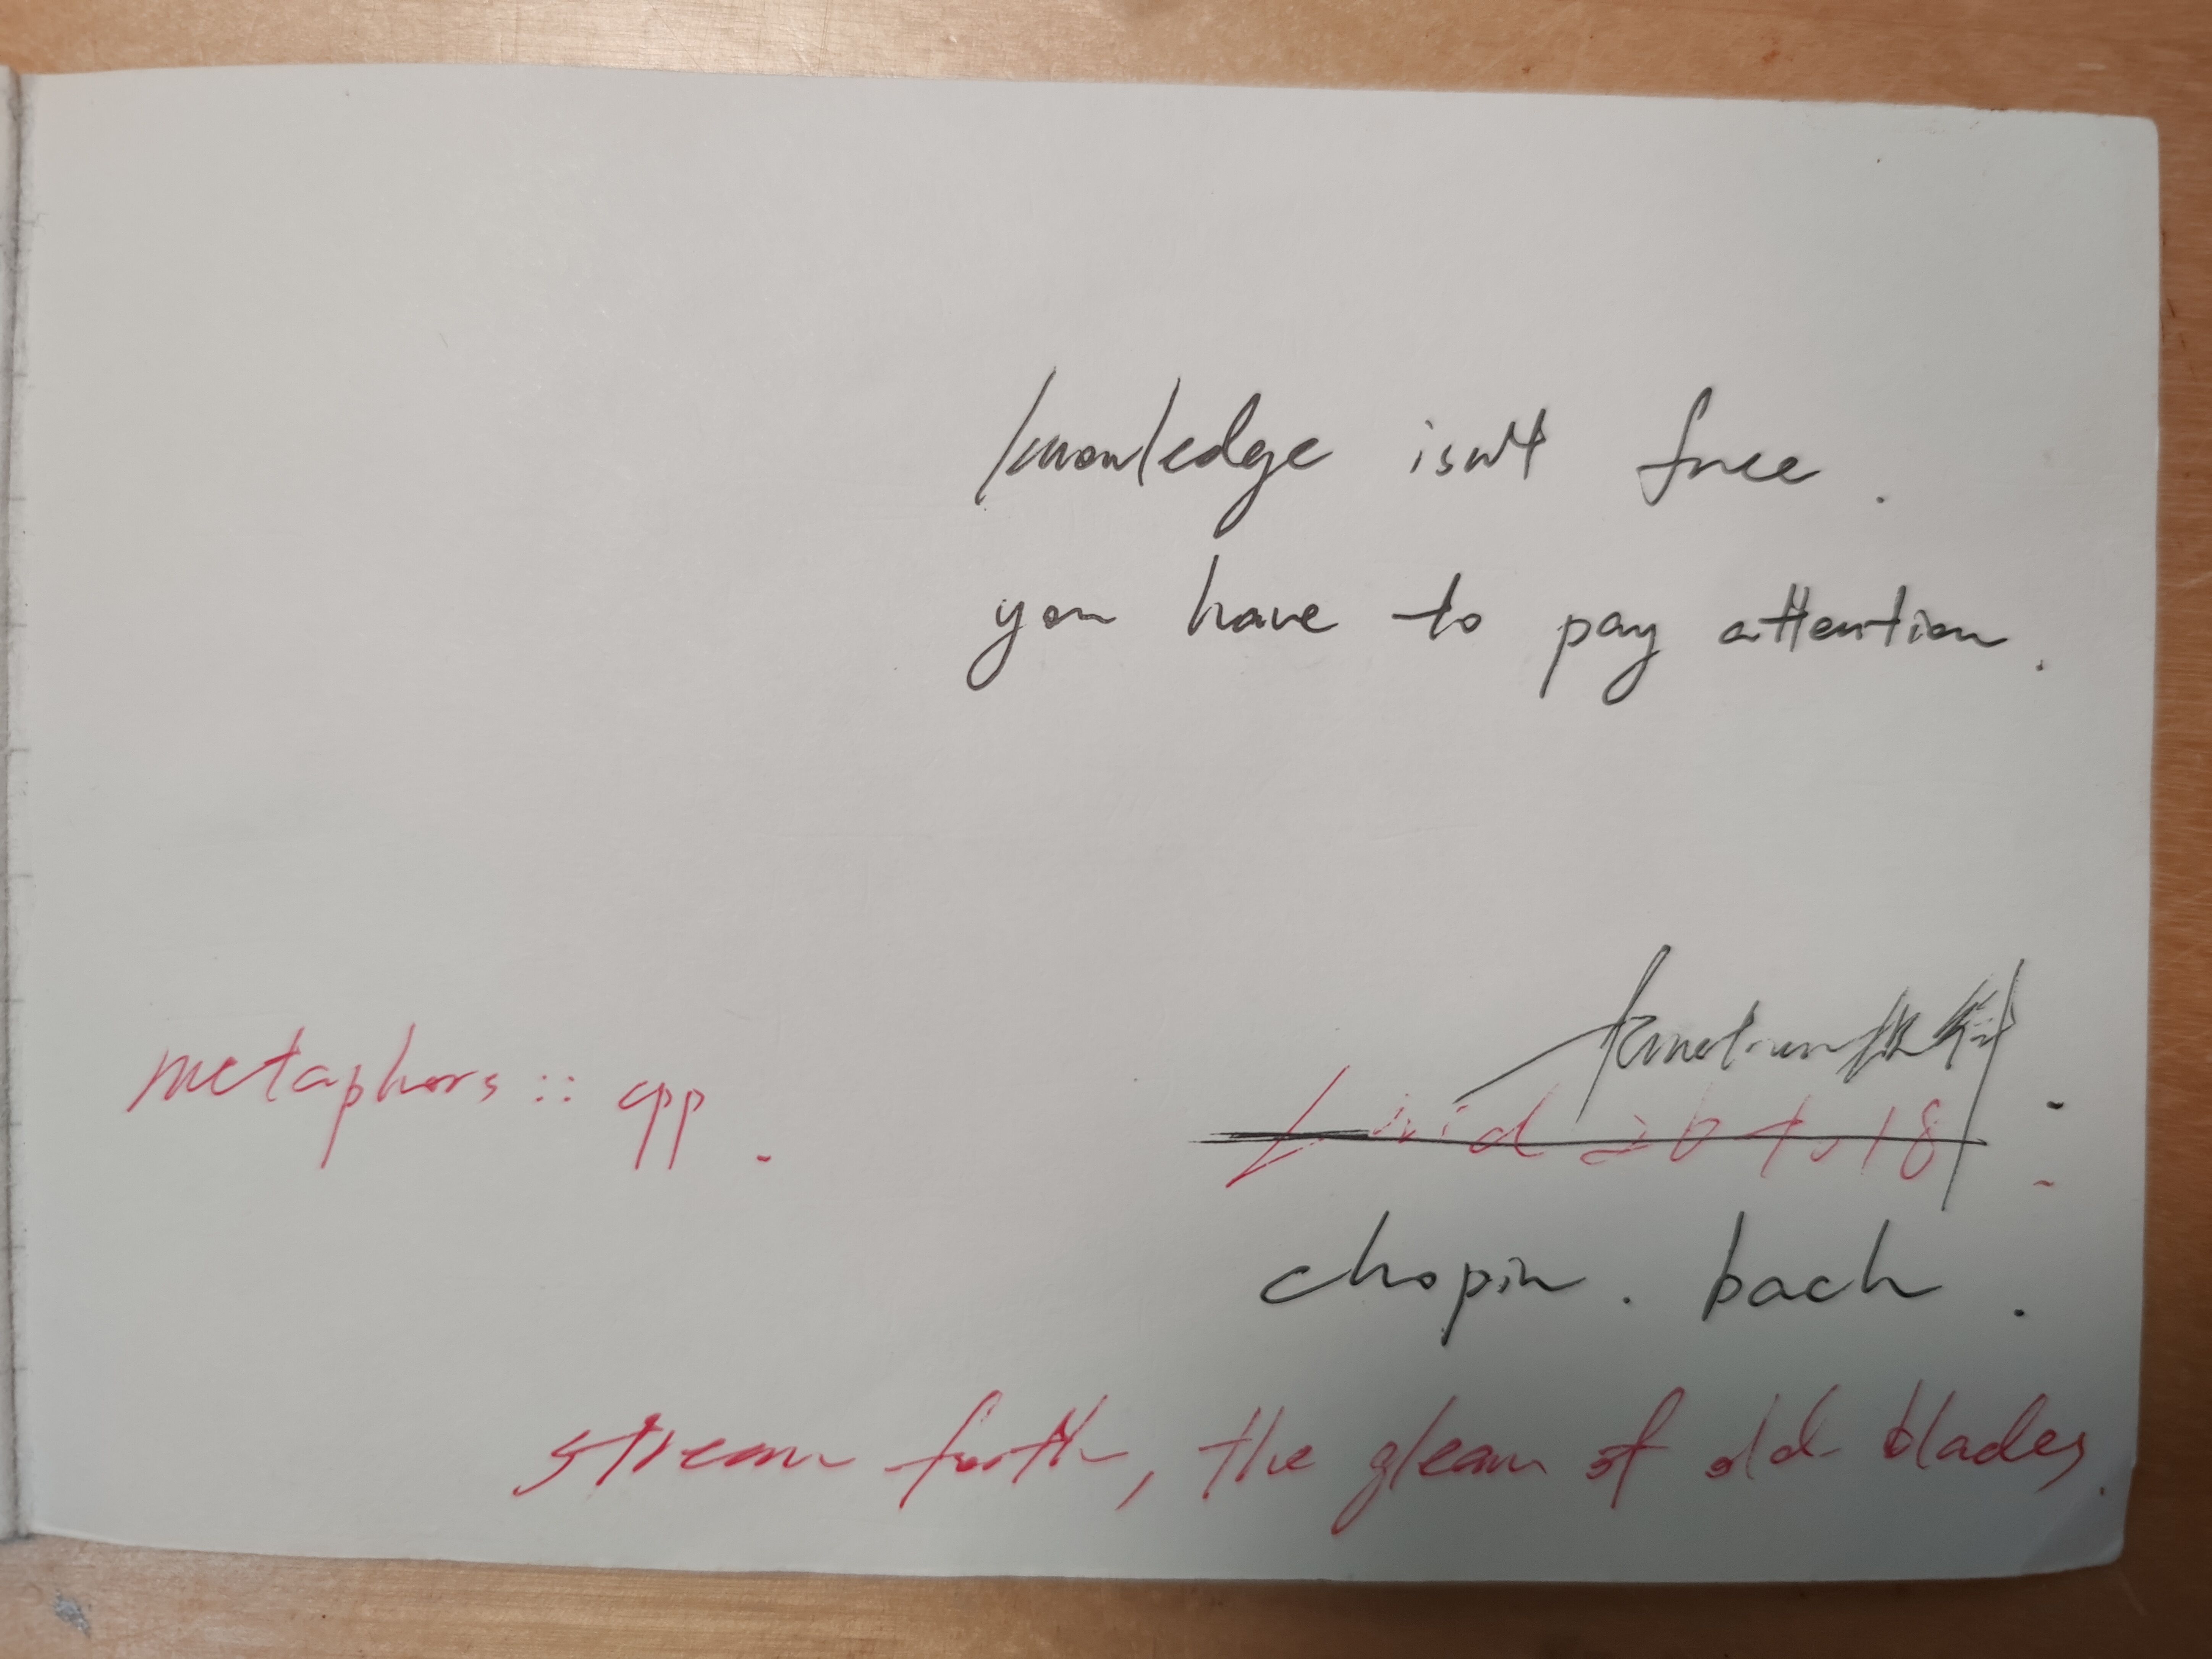 knowledge isn't free.
you have to pay attention.
metaphors :: cpp.
chopin. bach.
stream forth, the gleam of old blades.